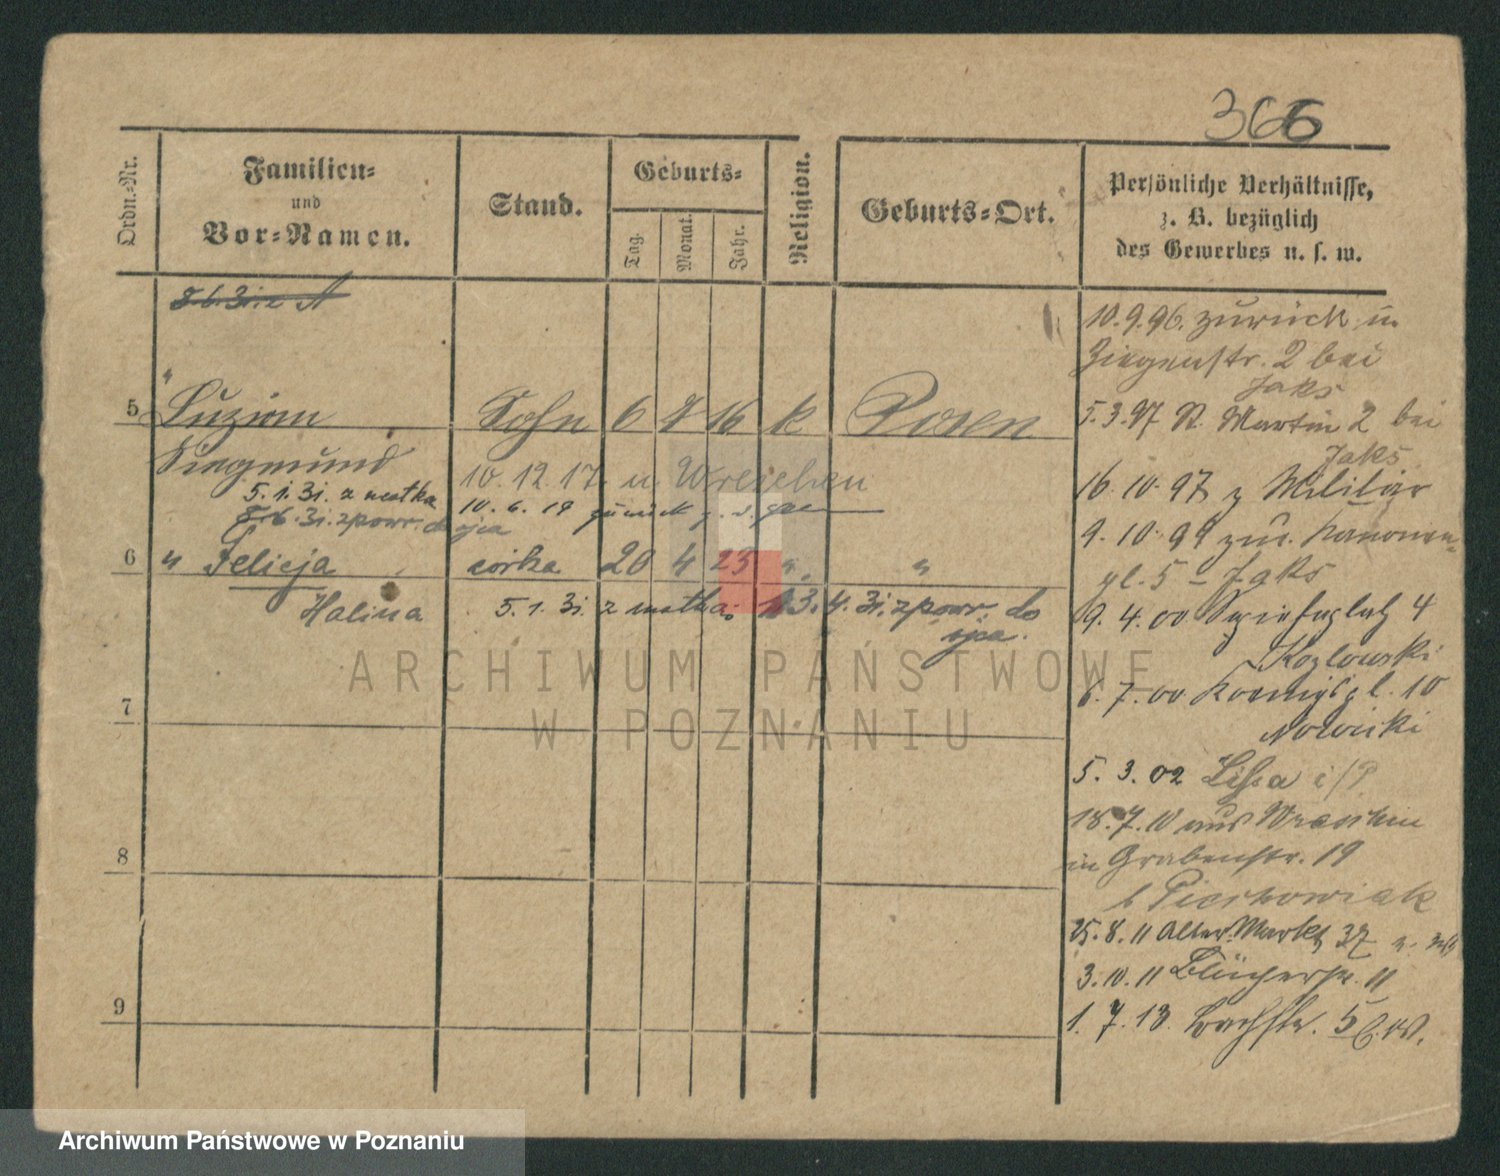 366
Ordn.-Nr.
Familien-
und
Vor-Namen.
Stand.
Geburts-
Tag.
Monat.
Jahr.
Religion.
Geburts-Ort.
Persönliche Verhältnisse,
z. B. bezüglich
des Gewerbes u. s. w.
5 Luzian Sohn 6 16 k Posen
Siegmund 10. 12. 17. n. Wreschen
5. 1. 31. z matką 10. 6. 19 zurück
8.6. 31. z powr. do ojca
6 " Felicja córka 20 4 23 " "
Halina 5. 1. 31. z matką 4. 31. z powr. do
ojca.
7
8
9
10. 9. 96. zurück in
Ziegenstr. 2 bei
Jaks
5. 3. 97 St. Martin 2 bei
Jaks
16. 10. 97 z Militär
9. 10. 99 zur. Kanonen-
pl. 5 - Jaks
9. 4. 00 Sapiehaplatz 4
Kozlowski
6. 7. 00 Koenigspl. 10
Nowicki
5. 3. 02 Lissa i/P
18. 7. 10 aus Wreschen
in Grabenstr. 19
b Piechowiak
25. 8. 11 Alter Markt 37
3. 10. 11 Blücherstr. 11
1. 7. 13. Bachstr. 5
ARCHIWUM PAŃSTWOWE
W POZNANIU
Archiwum Państwowe w Poznaniu